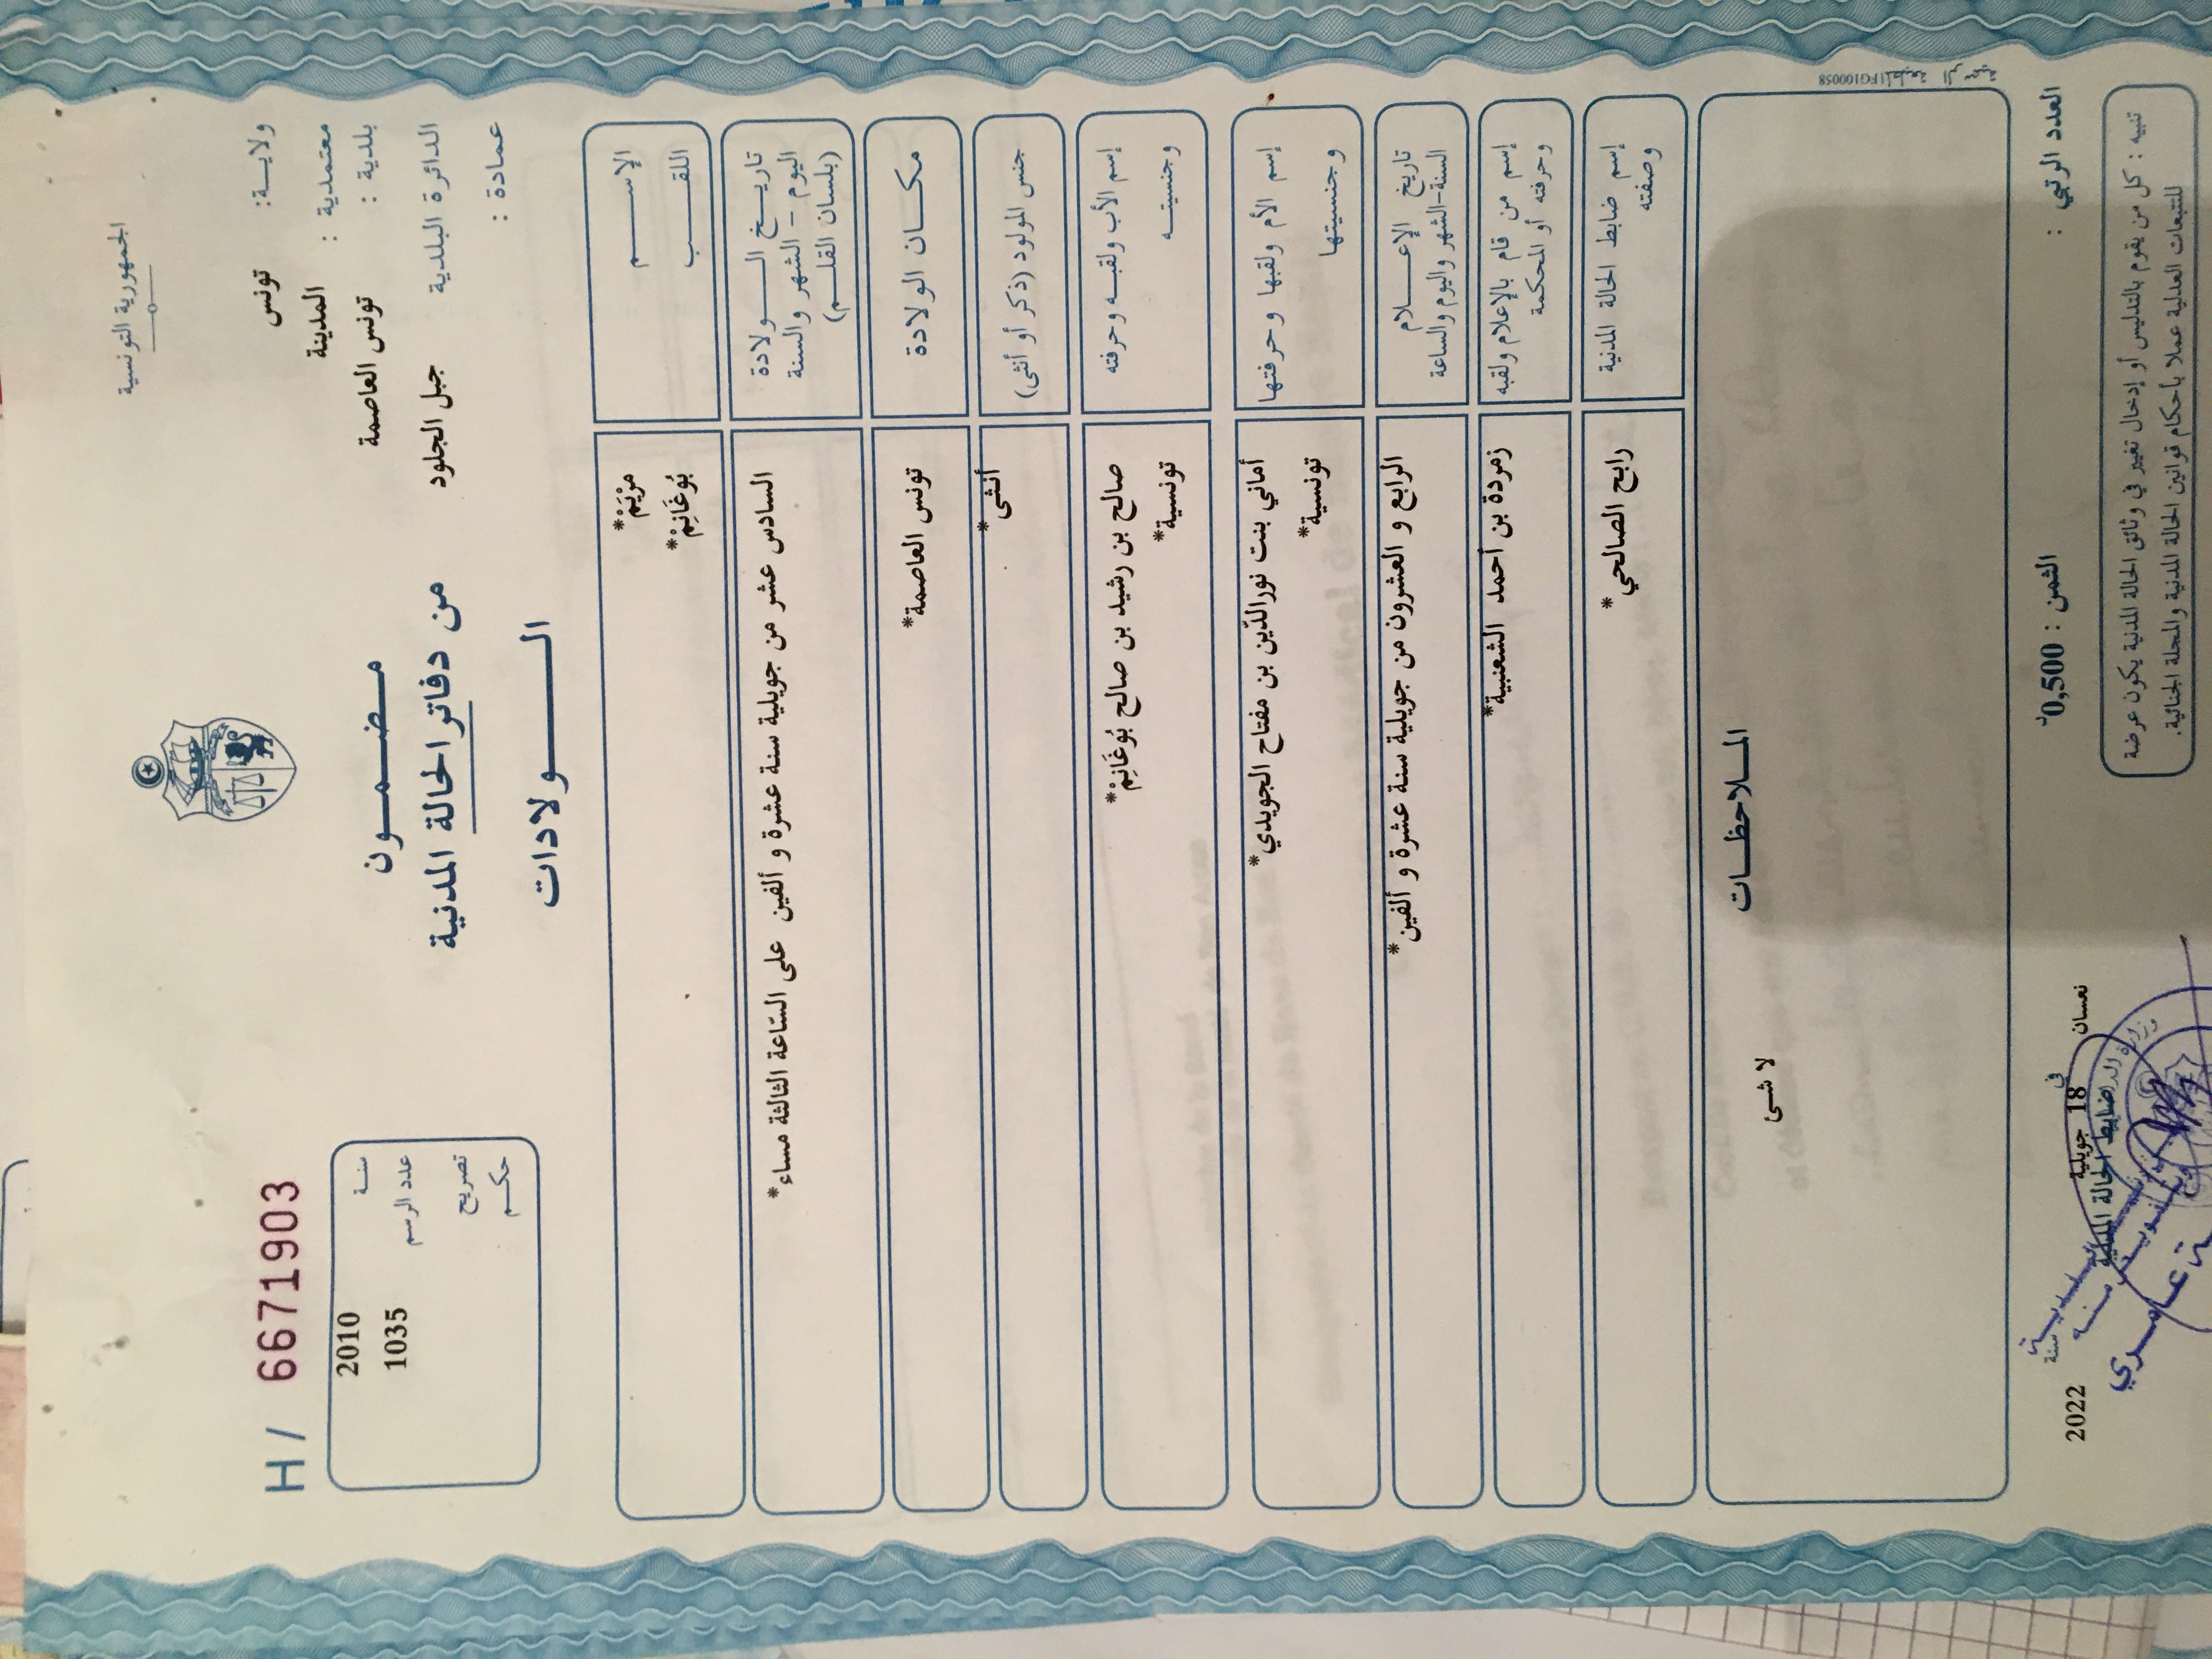 الجمهورية التونسية
ولاية: تونس
معتمدية : المدينة
بلدية : تونس العاصمة
الدائرة البلدية جبل الجلود
عمادة :
مضمون
من دفاتر الحالة المدنية
الولادات
H / 6671903
سنة 2010
عدد الرسم 1035
تصريح
حكم
الإسم مَرْيَمْ*
اللقب بُوغَانِمْ*
تاريخ الولادة السادس عشر من جويلية سنة عشرة و ألفين على السّاعة الثالثة مساء*
اليوم - الشهر والسنة
(بلسان القلم)
مكان الولادة تونس العاصمة*
جنس المولود (ذكر أو أنثى) أنثى*
إسم الأب ولقبه وحرفته صالح بن رشيد بن صالح بُوغَانِمْ*
وجنسيته تونسية*
إسم الأم ولقبها وحرفتها أماني بنت نورالدّين بن مفتاح الجويدي*
وجنسيتها تونسية*
تاريخ الإعلام الرابع و العشرون من جويلية سنة عشرة و ألفين*
السنة-الشهر واليوم والساعة
إسم من قام بالإعلام ولقبه زمردة بن أحمد الشعنبية*
وحرفته أو المحكمة
إسم ضابط الحالة المدنية رابع الصالحي*
وصفته
الملاحظات
لا شئ
المطبعة الرسمية FG100058
العدد الرتبي :
الثمن : 0,500د
نعسان في 18 جويلية سنة 2022
ضابط الحالة المدنية
تنبيه : كل من يقوم بالتدليس أو إدخال تغيير في وثائق الحالة المدنية يكون عرضة
للتتبعات العدلية عملا بأحكام قوانين الحالة المدنية والمجلة الجنائية.